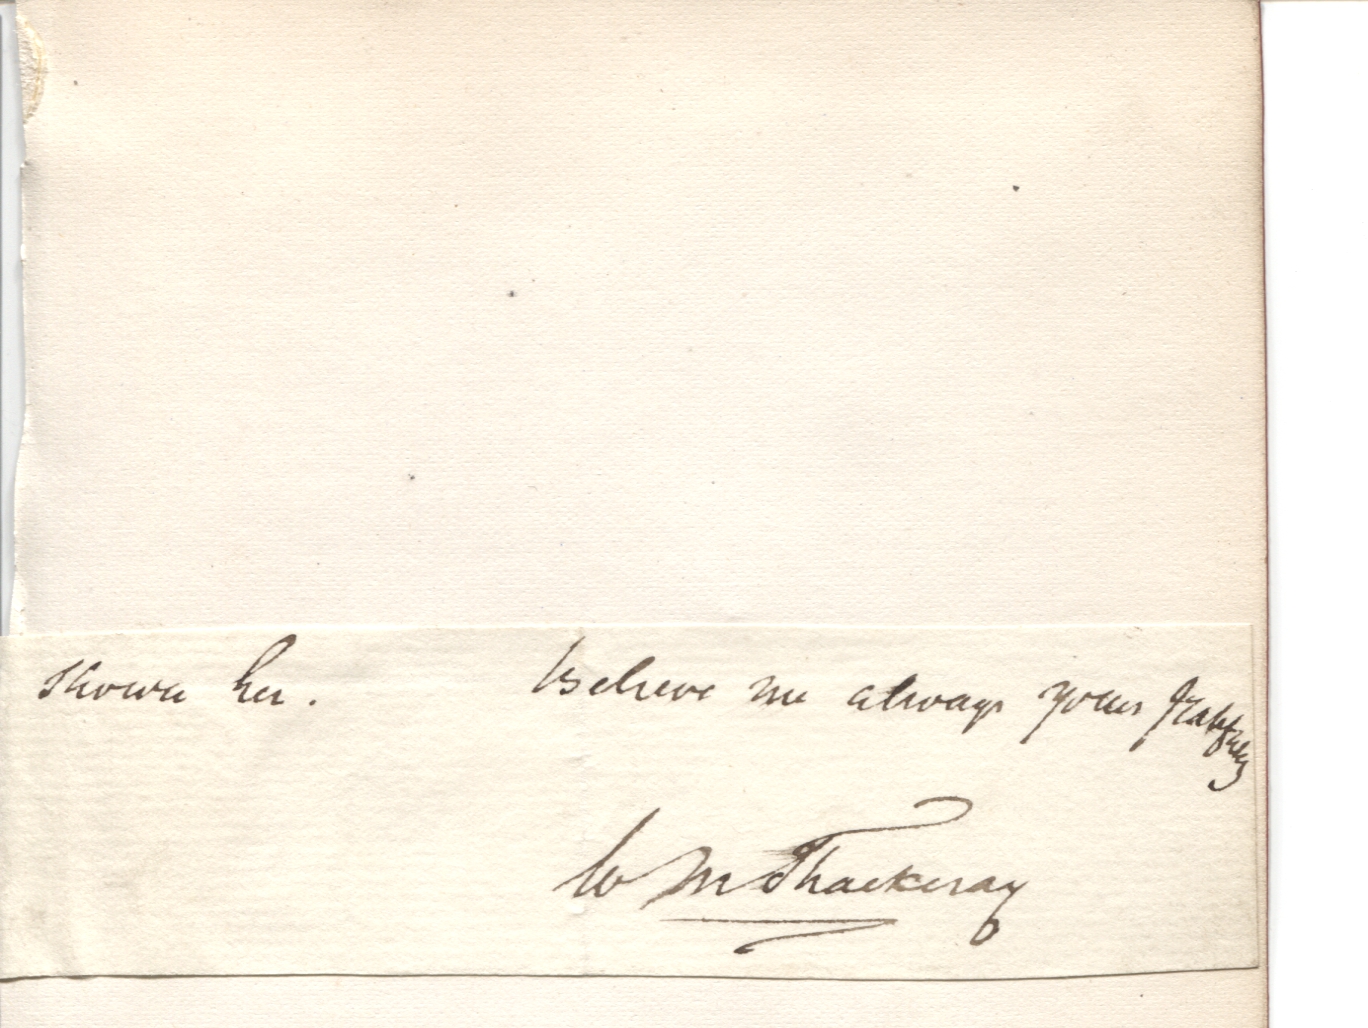 shown her. Believe me always yours gratefully
W M Thackeray